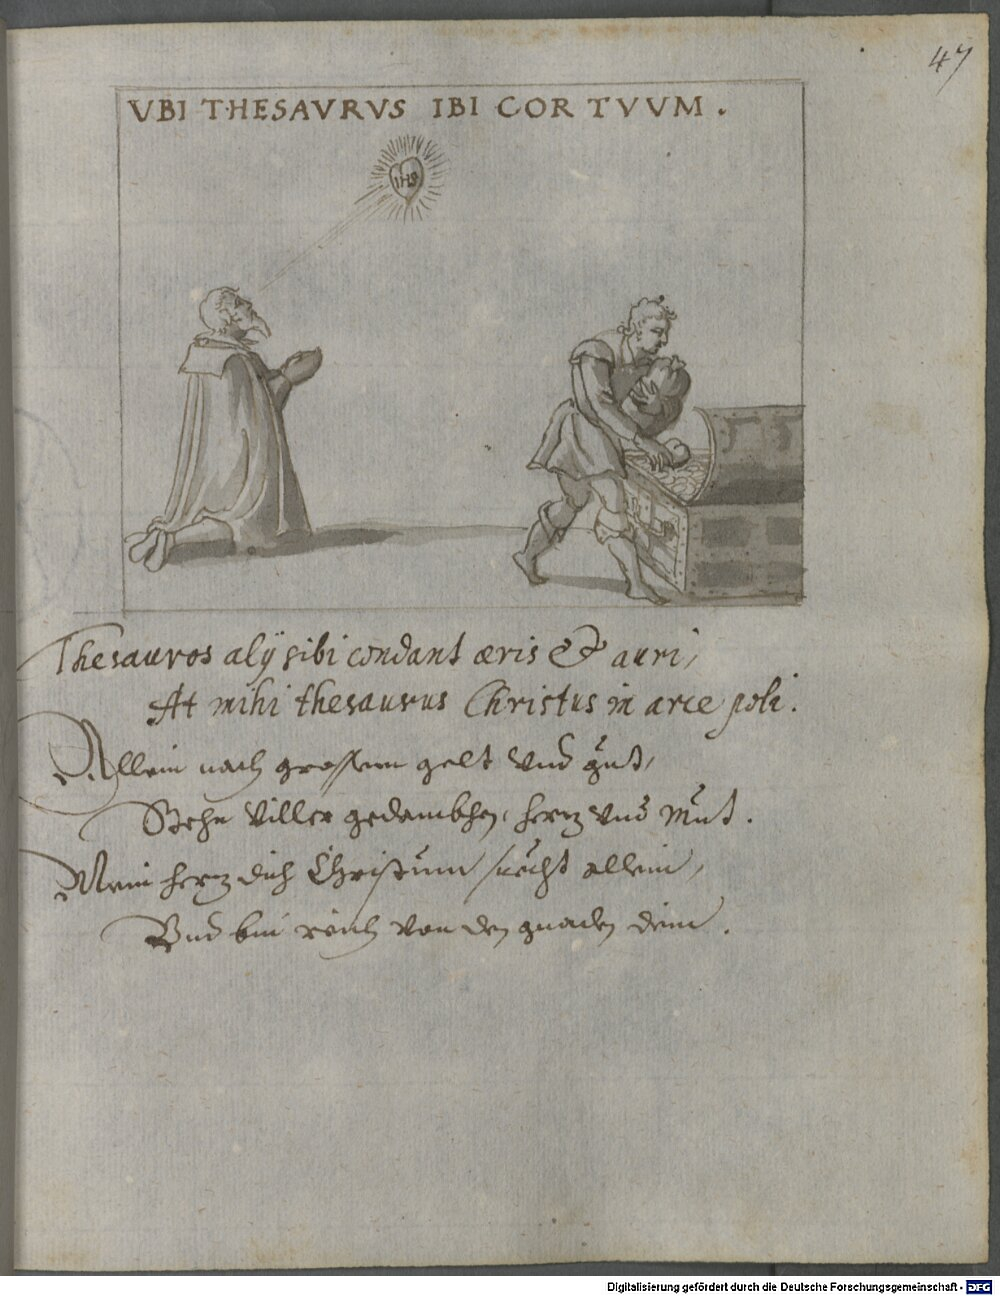 47
VBI THESAVRVS IBI COR TVVM.
IHS
Thesauros alÿ sibi condant æris & auri,
At mihi thesaurus Christus in arce poli.
Allein nach grossem gelt vnd gut,
Stehn viller gedanckhen, hertz vnd Mut.
Mein hertz dich Christum sucht allein,
Vnd bin reich von den gnaden dein.
Digitalisierung gefördert durch die Deutsche Forschungsgemeinschaft - DFG